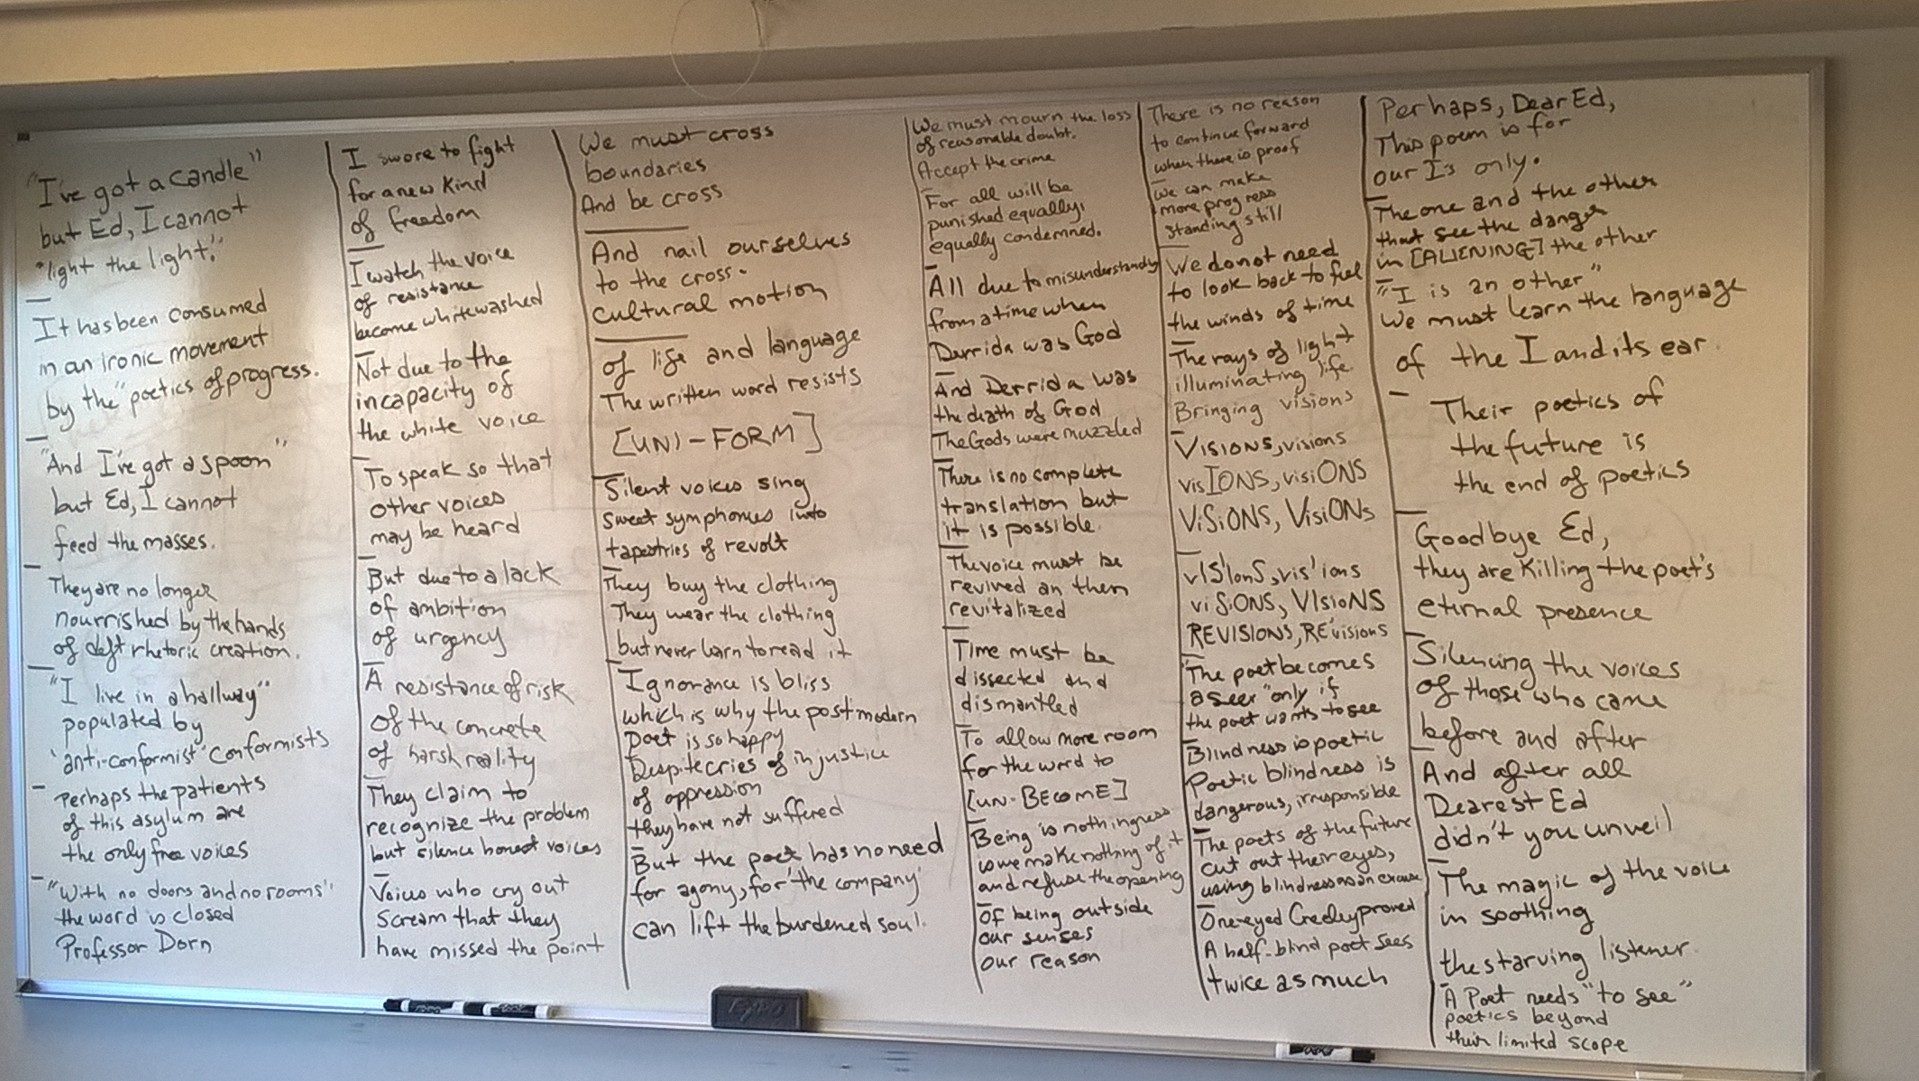 "I've got a candle"
but Ed, I cannot
"light the light."
It has been consumed
in an ironic movement
by the "poetics of progress.
"And I've got a spoon"
but Ed, I cannot
feed the masses.
They are no longer
nourrished by the hands
of deft rhetoric creation.
"I live in a hallway"
populated by
"anti-conformist" conformists
Perhaps the patients
of this asylum are
the only free voices
"With no doors and no rooms"
the word is closed
Professor Dorn
I swore to fight
for a new kind
of freedom
I watch the voice
of resistance
become whitewashed
Not due to the
incapacity of
the white voice
To speak so that
other voices
may be heard
But due to a lack
of ambition
of urgency
A resistance of risk
of the concrete
of harsh reality
They claim to
recognize the problem
but silence honest voices
Voices who cry out
Scream that they
have missed the point
We must cross
boundaries
And be cross
And nail ourselves
to the cross-
cultural motion
of life and language
The written word resists
[UNI-FORM]
Silent voices sing
sweet symphonies into
tapestries of revolt
They buy the clothing
They wear the clothing
but never learn to read it
Ignorance is bliss
which is why the postmodern
poet is so happy
Despite cries of injustice
of oppression
they have not suffered
But the poet has no need
for agony, for "the company"
can lift the burdened soul.
We must mourn the loss
of reasonable doubt.
Accept the crime
For all will be
punished equally,
equally condemned.
All due to misunderstanding
from a time when
Derrida was God
And Derrida was
the death of God
The Gods were muzzled
There is no complete
translation but
it is possible.
The voice must be
revived an then
revitalized
Time must be
dissected and
dismantled
To allow more room
for the word to
[UN-BECOME]
Being is nothingness
so we make nothing of it
and refuse the opening
Of being outside
our senses
our reason
There is no reason
to continue forward
when there is proof
We can make
more progress
standing still
We do not need
to look back to feel
the winds of time
The rays of light
illuminating life.
Bringing visions
VISIONS, visions
visIONS, visiONS
ViSiONS, VisiONs
vIS'IonS, vis'ions
viSiONS, VIsioNS
REVISIONS, RE'visions
"The poet becomes
a seer" only if
the poet wants to see
Blindness is poetic
Poetic blindness is
dangerous, irresponsible
The poets of the future
cut out their eyes,
using blindness as an excuse
One-eyed Creeley proved
A half-blind poet sees
twice as much
Perhaps, Dear Ed,
This poem is for
our I's only.
The one and the other
that see the danger
in [ALIENING] the other
"I is an other"
We must learn the language
of the I and its ear.
Their poetics of
the future is
the end of poetics
Goodbye Ed,
they are killing the poet's
eternal presence
Silencing the voices
of those who came
before and after
And after all
Dearest Ed
didn't you unveil
The magic of the voice
in soothing
the starving listener.
A Poet needs "to see"
poetics beyond
their limited scope
Expo